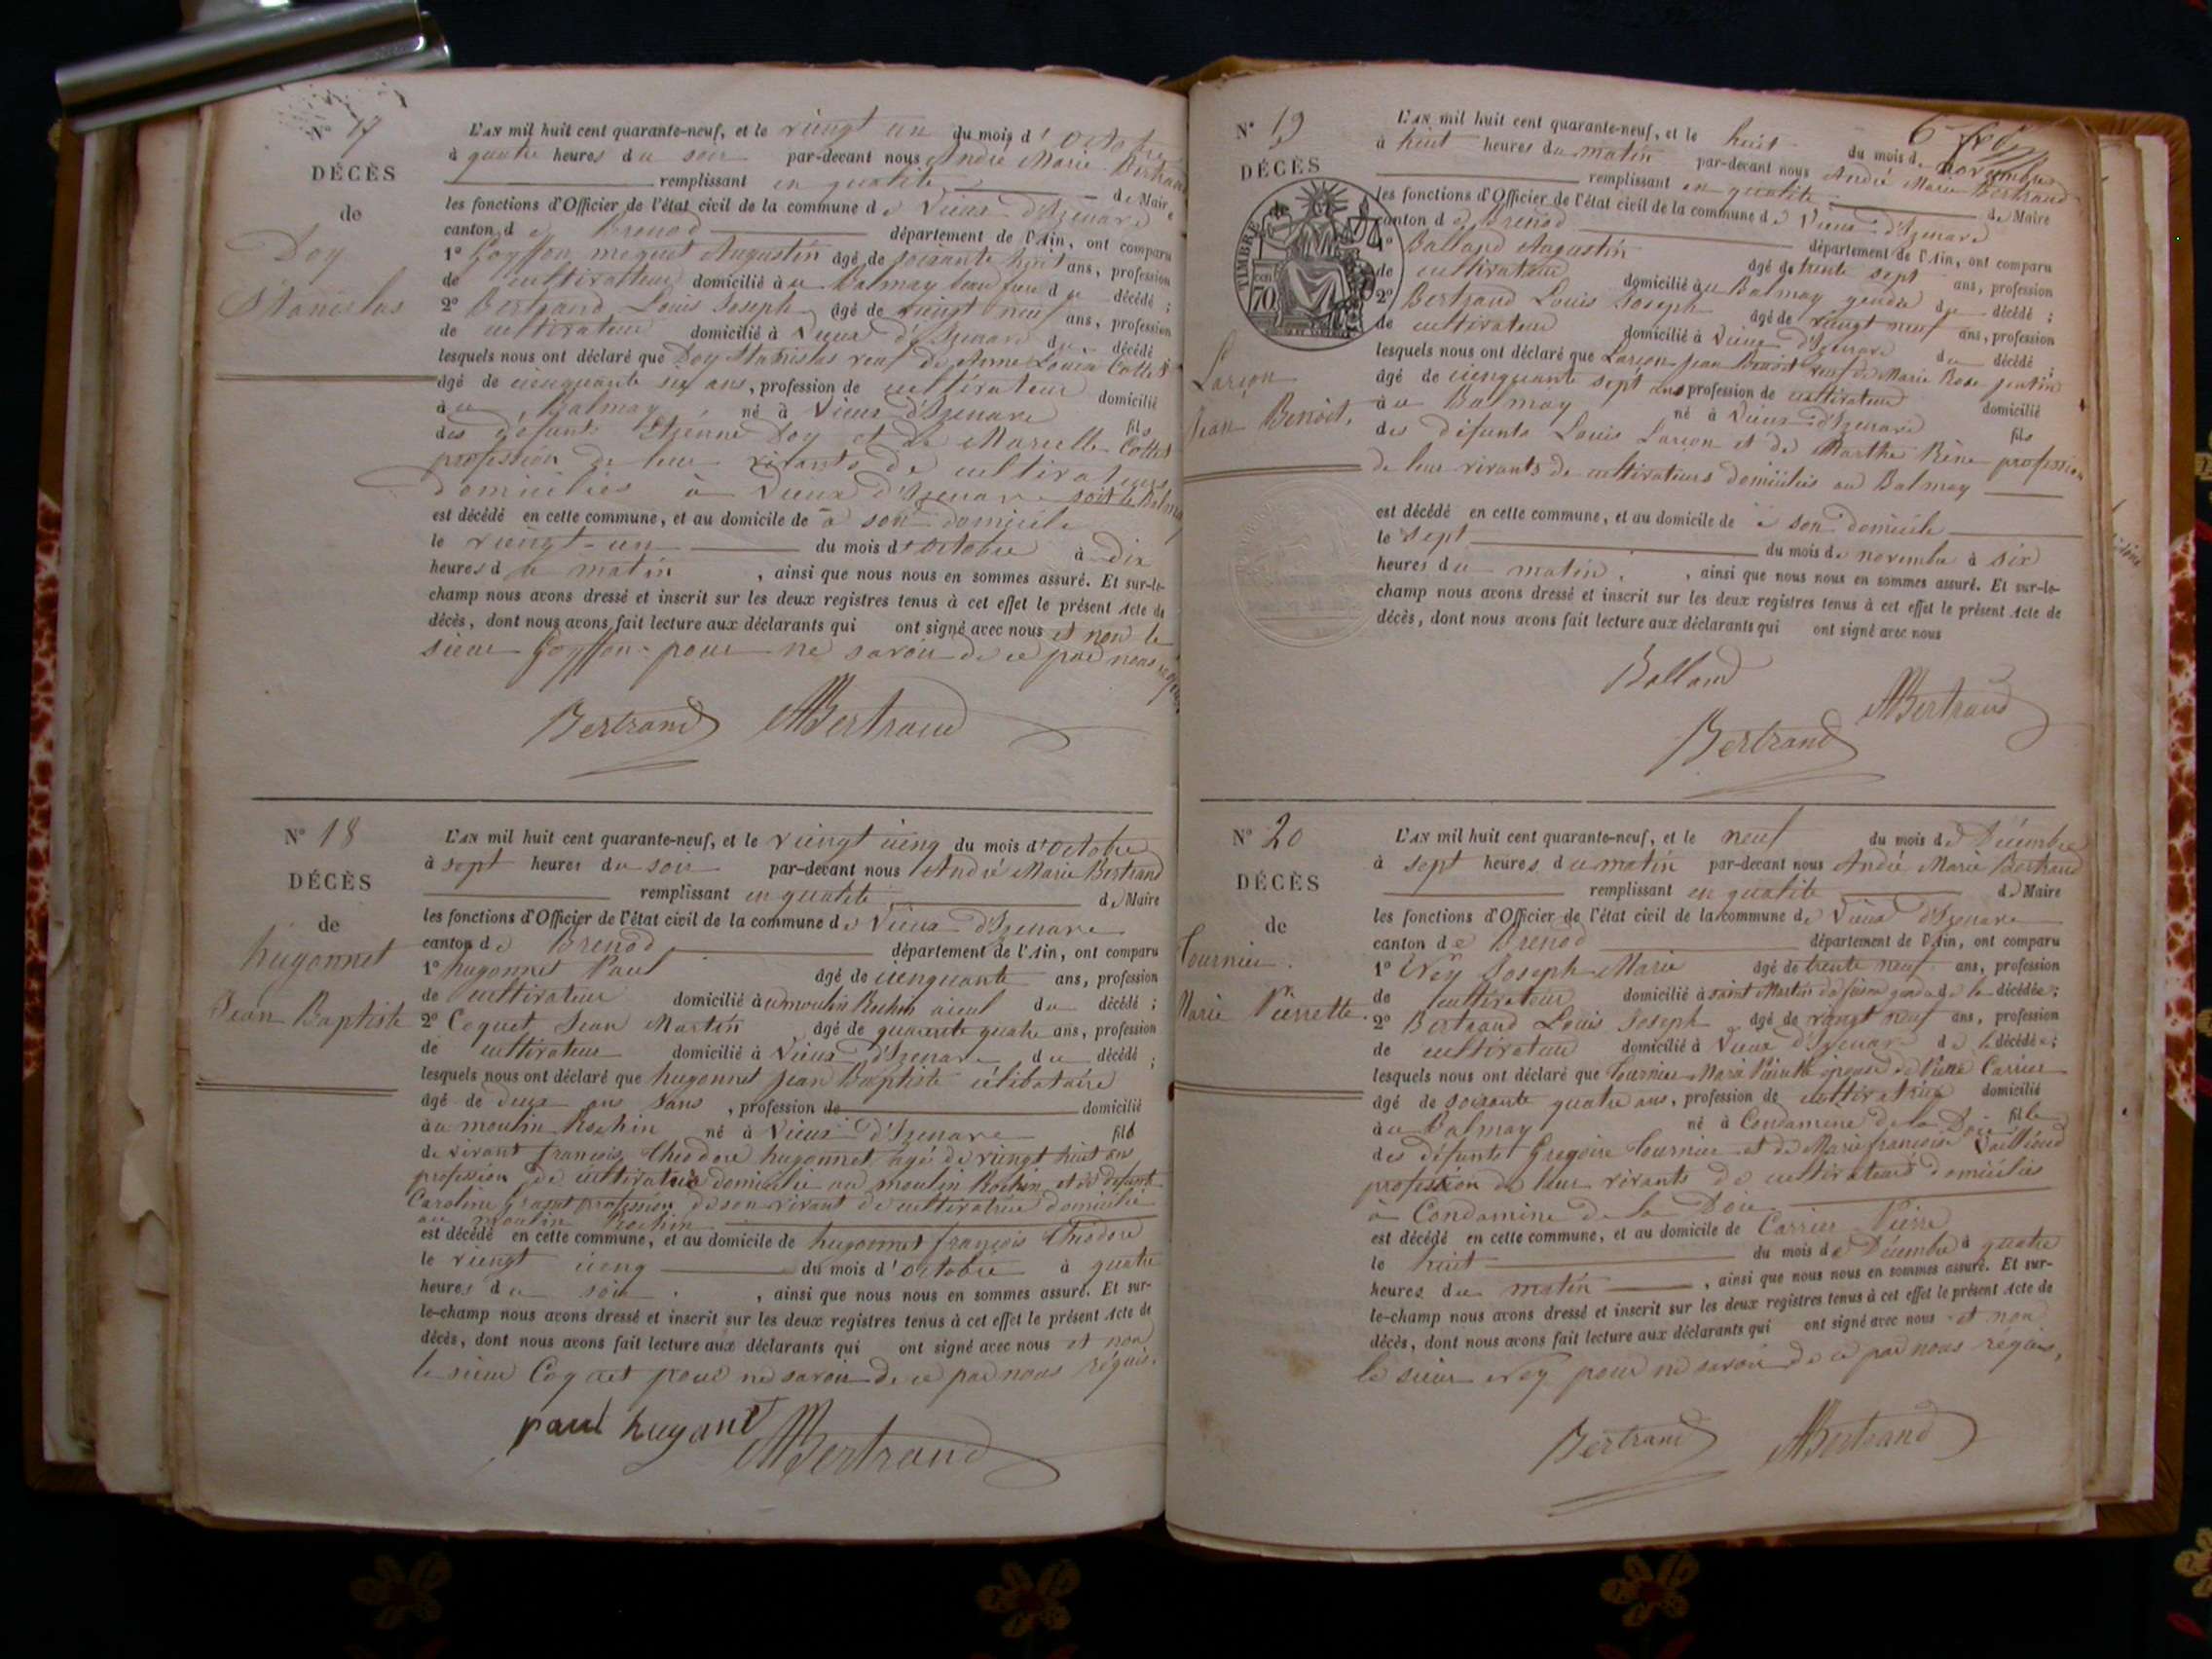 N° 17
DÉCÈS
de
Doy
Stanislas
L'AN mil huit cent quarante-neuf, et le vingt un du mois d'Octobre
à quatre heures du soir par-devant nous André Marie Bertrand
remplissant en qualité de Maire
les fonctions d'Officier de l'état civil de la commune de Vieux d'Izenave
canton de Brenod département de l'Ain, ont comparu
1° Goyffon Augustin âgé de soixante huit ans, profession
de cultivateur domicilié au Balmay beau frere du décédé ;
2° Bertrand Louis Joseph âgé de vingt neuf ans, profession
de cultivateur domicilié à Vieux d'Izenave du décédé
lesquels nous ont déclaré que Doy Stanislas veuf de Anne Louise Collet
âgé de cinquante six ans, profession de cultivateur domicilié
au Balmay né à Vieux d'Izenave fils
des défunts Etienne Doy et de Marcelle Collet
profession de leur vivants de cultivateurs
domiciliés à Vieux d'Izenave
est décédé en cette commune, et au domicile de à son domicile
le vingt-un du mois d'Octobre à dix
heures du matin, ainsi que nous nous en sommes assuré. Et sur-le-
champ nous avons dressé et inscrit sur les deux registres tenus à cet effet le présent Acte de
décès, dont nous avons fait lecture aux déclarants qui ont signé avec nous et non le
sieur Goyffon pour ne savoir de ce par nous requis
Bertrand AMBertrand
N° 18
DÉCÈS
de
hugonnet
Jean Baptiste
L'AN mil huit cent quarante-neuf, et le vingt cinq du mois d'Octobre
à sept heures du soir par-devant nous André Marie Bertrand
remplissant en qualité de Maire
les fonctions d'Officier de l'état civil de la commune de Vieux d'Izenave
canton de Brenod département de l'Ain, ont comparu
1° hugonnet Paul âgé de cinquante ans, profession
de cultivateur domicilié au moulin Rochin aieul du décédé ;
2° Coquet Jean Martin âgé de quarante quatre ans, profession
de cultivateur domicilié à Vieux d'Izenave du décédé ;
lesquels nous ont déclaré que hugonnet Jean Baptiste célibataire
âgé de deux ans sans, profession de domicilié
au moulin Rochin né à Vieux d'Izenave fils
de vivant françois Théodore hugonnet âgé de vingt huit ans
profession de cultivateur domicilié au moulin Rochin et de défunte
Caroline profession de son vivant de cultivatrice domicilié
au moulin Rochin
est décédé en cette commune, et au domicile de hugonnet françois Théodore
le vingt cinq du mois d'Octobre à quatre
heures du soir, ainsi que nous nous en sommes assuré. Et sur-
le-champ nous avons dressé et inscrit sur les deux registres tenus à cet effet le présent Acte de
décès, dont nous avons fait lecture aux déclarants qui ont signé avec nous et non
le sieur Coquet pour ne savoir de ce par nous requis.
paul hugont AMBertrand
N° 19
DÉCÈS
TIMBRE
70
Larçon
Jean Benoit.
L'AN mil huit cent quarante-neuf, et le huit du mois de novembre
à huit heures du matin par-devant nous André Marie Bertrand
remplissant en qualité de Maire
les fonctions d'Officier de l'état civil de la commune de Vieux d'Izenave
canton de Brenod département de l'Ain, ont comparu
1° Balland Augustin âgé de trente sept ans, profession
de cultivateur domicilié au Balmay gendre du décédé ;
2° Bertrand Louis Joseph âgé de vingt neuf ans, profession
de cultivateur domicilié à Vieux d'Izenave du décédé ;
lesquels nous ont déclaré que Larçon Jean Benoit veuf de Marie Rose
âgé de cinquante sept ans profession de cultivateur domicilié
au Balmay né à Vieux d'Izenave fils
des défunts Louis Larçon et de Marthe Rène profession
de leur vivants de cultivateurs domiciliés au Balmay
est décédé en cette commune, et au domicile de à son domicile
le sept du mois de novembre à six
heures du matin, ainsi que nous nous en sommes assuré. Et sur-le-
champ nous avons dressé et inscrit sur les deux registres tenus à cet effet le présent Acte de
décès, dont nous avons fait lecture aux déclarants qui ont signé avec nous
Balland
AMBertrand
Bertrand
N° 20
DÉCÈS
de
Tournier
Marie Pierrette.
L'AN mil huit cent quarante-neuf, et le neuf du mois de Décembre
à sept heures du matin par-devant nous André Marie Bertrand
remplissant en qualité de Maire
les fonctions d'Officier de l'état civil de la commune de Vieux d'Izenave
canton de Brenod département de l'Ain, ont comparu
1° Joseph Marie âgé de trente neuf ans, profession
de cultivateur domicilié à saint Martin du fresne gendre de la décédée ;
2° Bertrand Louis Joseph âgé de vingt neuf ans, profession
de cultivateur domicilié à Vieux d'Izenave de la décédée ;
lesquels nous ont déclaré que Tournier Marie Pierrette épouse de Pierre Carrier
âgé de soixante quatre ans, profession de cultivatrice domicilié
au Balmay né à Condamine de la Doie fille
des défunts Gregoire Tournier et de Marie françoise
profession de leur vivants de cultivateurs domiciliés
à Condamine de la Doie
est décédé en cette commune, et au domicile de Carrier Pierre
le huit du mois de Décembre à quatre
heures du matin, ainsi que nous nous en sommes assuré. Et sur-
le-champ nous avons dressé et inscrit sur les deux registres tenus à cet effet le présent Acte de
décès, dont nous avons fait lecture aux déclarants qui ont signé avec nous et non
le sieur pour ne savoir de ce par nous requis,
Bertrand AMBertrand